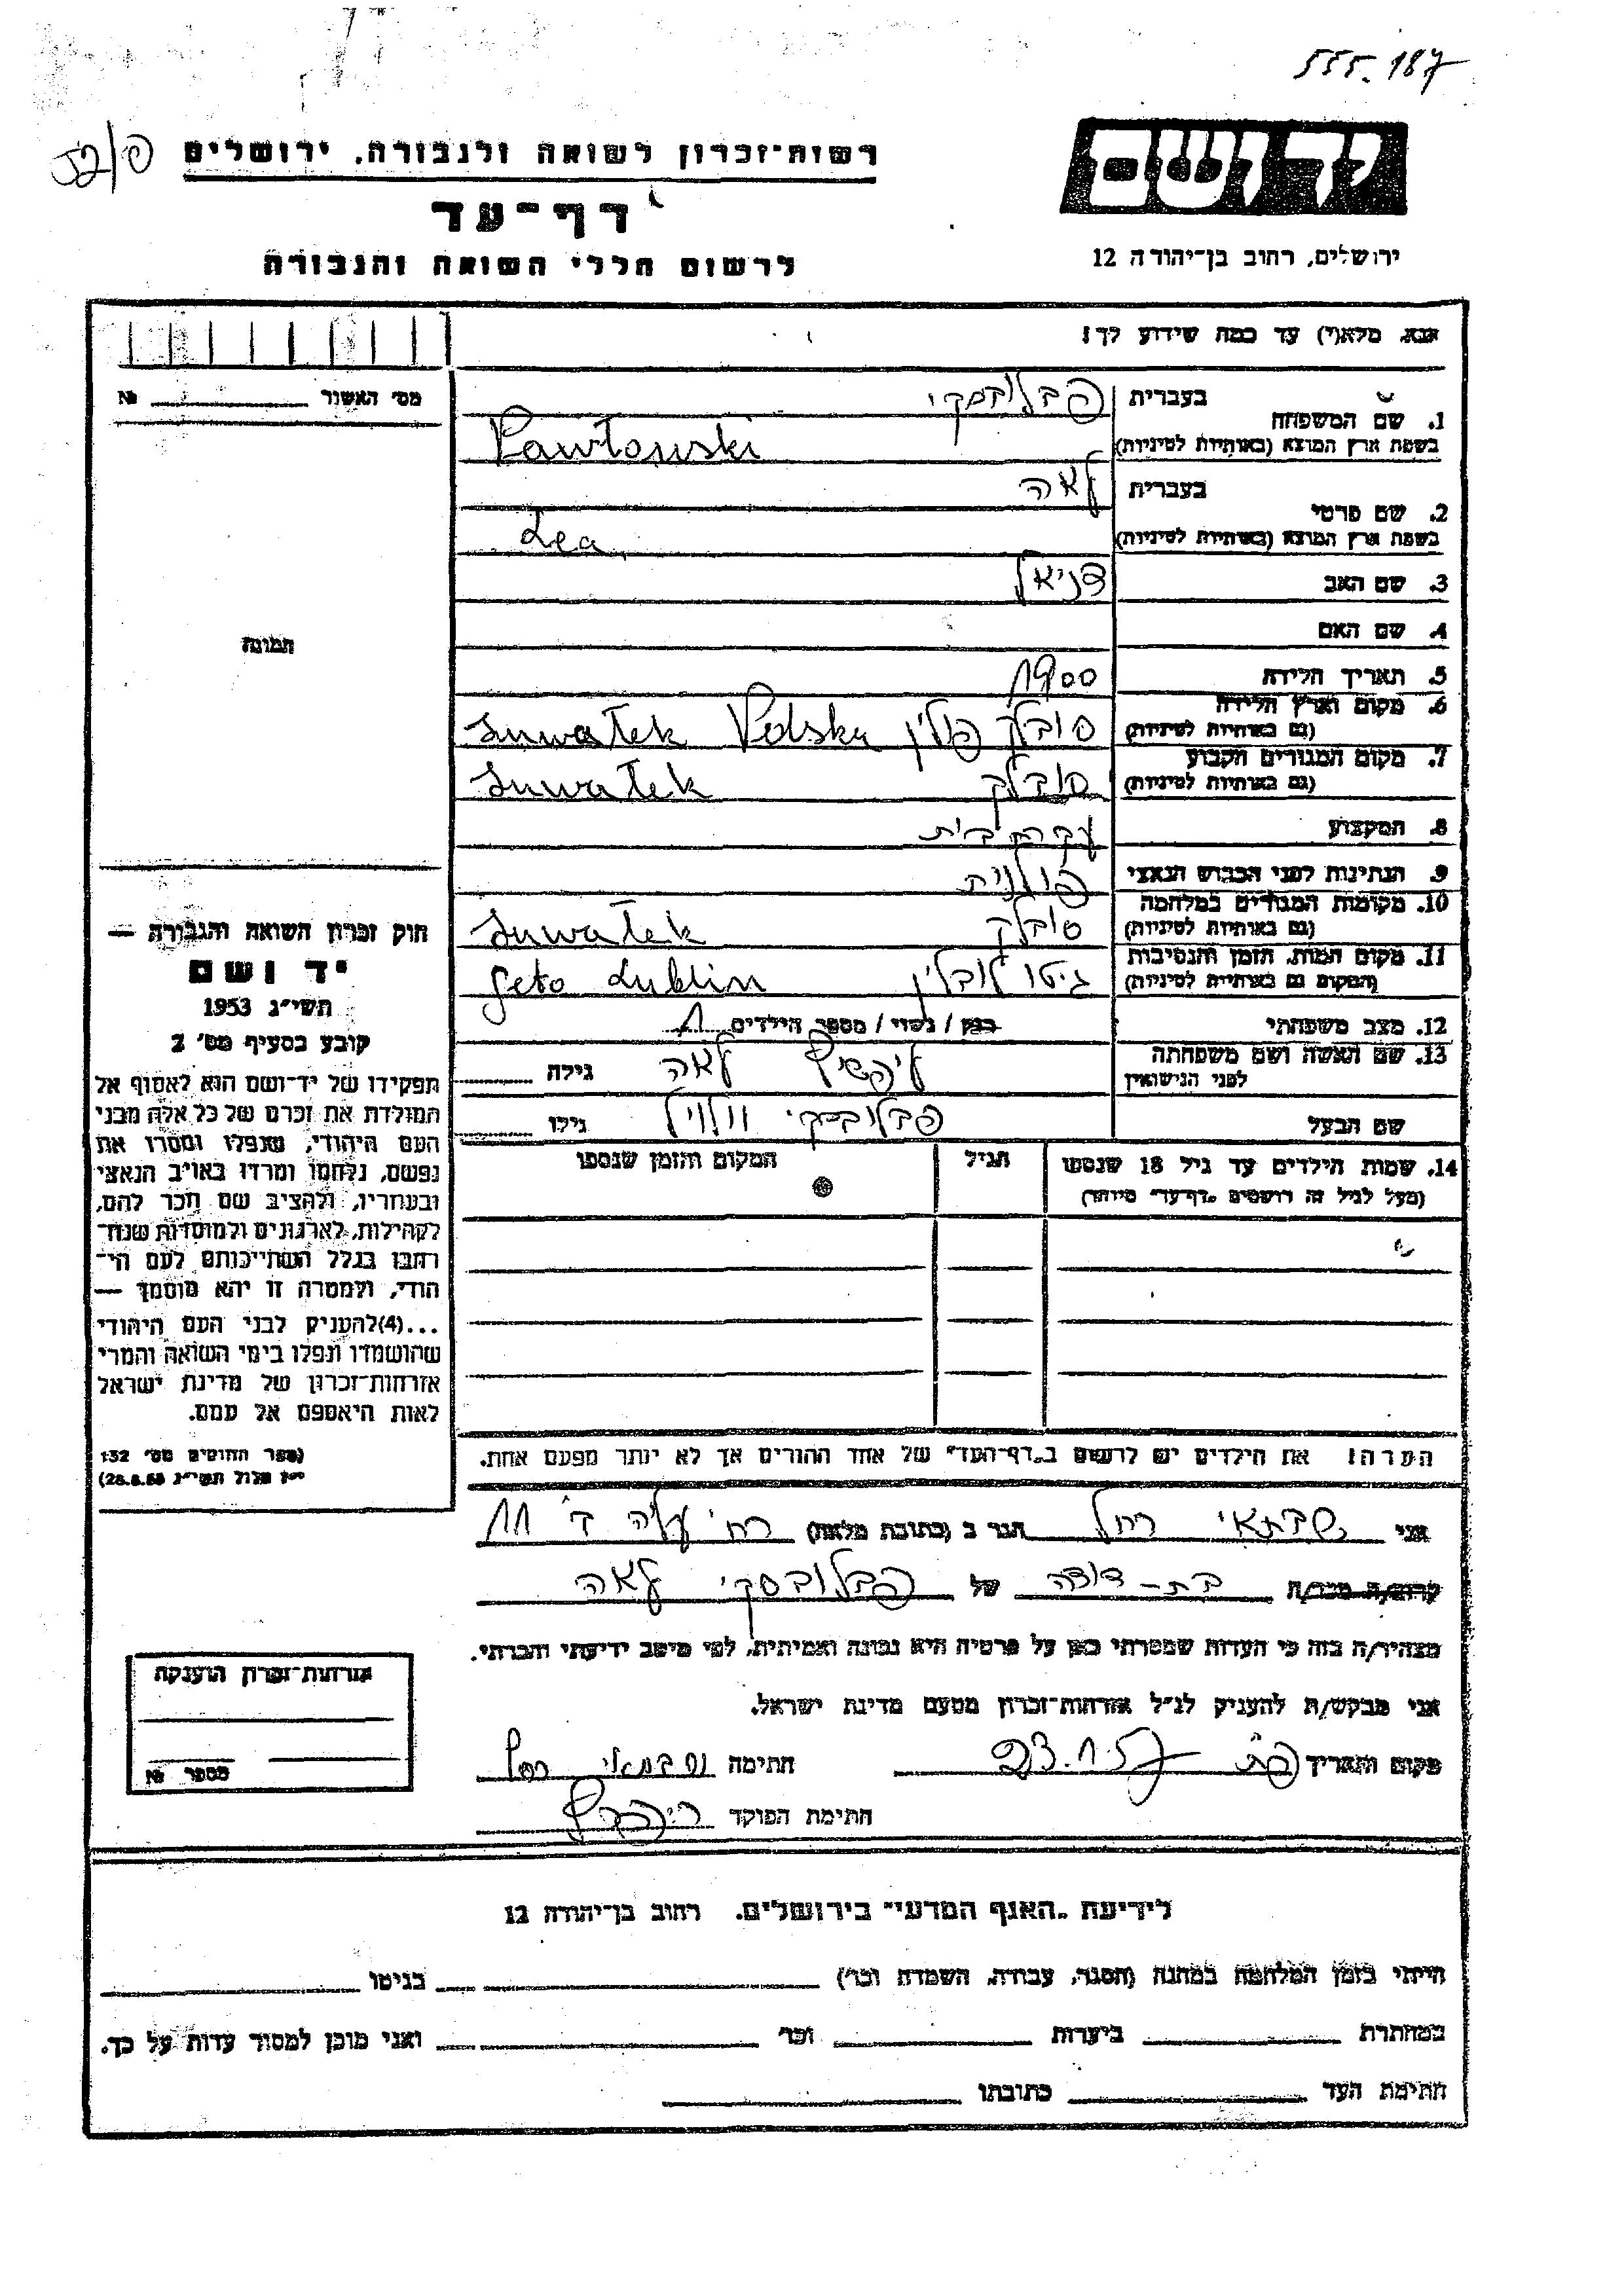 555.187
פ/52
רשות־זכרון לשואה ולגבורה, ירושלים
דף־עד
לרשום חללי השואה והגבורה
יד ושם
ירושלים, רחוב בן־יהודה 12
אנא, מלא(י) עד כמה שידוע לך!
מס׳ האשור № 
1. שם המשפחה
בעברית פבלובסקי
בשפת ארץ המוצא (באותיות לטיניות) Pawłowski
2. שם פרטי
בעברית לאה
בשפת ארץ המוצא (באותיות לטיניות) Lea
3. שם האב דניאל
4. שם האם
5. תאריך הלידה 1900
6. מקום וארץ הלידה
(גם באותיות לטיניות) סובלק פולין Suwałek Polska
7. מקום המגורים הקבוע
(גם באותיות לטיניות) סובלק Suwałek
8. המקצוע עקרת בית
9. הנתינות לפני הכבוש הנאצי פולנית
10. מקומות המגורים במלחמה
(גם באותיות לטיניות) סובלק Suwałek
11. מקום המות, הזמן והנסיבות
(המקום גם באותיות לטיניות) גיטו לובלין Geto Lublin
12. מצב משפחתי רווק / נשוי / מספר הילדים 1
13. שם האשה ושם משפחתה
לפני הנישואין ליפשיץ לאה גילה
שם הבעל פבלובסקי וולוויל גילו
14. שמות הילדים עד גיל 18 שנספו
(מעל לגיל זה רושמים „דף־עד״ מיוחד)
הגיל
המקום והזמן שנספו
הערה! את הילדים יש לרשום ב„דף־העד״ של אחד ההורים אך לא יותר מפעם אחת.
תמונה
חוק זכרון השואה והגבורה —
יד ושם
תשי״ג 1953
קובע בסעיף מס׳ 2
תפקידו של יד־ושם הוא לאסוף אל
המולדת את זכרם של כל אלה מבני
העם היהודי, שנפלו ומסרו את
נפשם, נלחמו ומרדו באויב הנאצי
ובעוזריו, ולהציב שם וזכר להם,
לקהילות, לארגונים ולמוסדות שנח־
רבו בגלל השתייכותם לעם הי־
הודי, ולמטרה זו יהא מוסמך —
...(4)להעניק לבני העם היהודי
שהושמדו ונפלו בימי השואה והמרי
אזרחות־זכרון של מדינת ישראל
לאות היאספם אל עמם.
(ספר החוקים מס׳ 132
י״ז אלול תשי״ג 28.8.53)
אני שבתאי רחל הגר ב (כתובת מלאה) רח׳ עליה ד׳ 11
קרוב/ה מכר/ה בת-דודה של פבלובסקי לאה
מצהיר/ה בזה כי העדות שמסרתי כאן על פרטיה היא נכונה ואמיתית, לפי מיטב ידיעתי והכרתי.
אני מבקש/ת להעניק לנ״ל אזרחות־זכרון מטעם מדינת ישראל.
מקום ותאריך פ״ת 23.1.57 חתימה שבתאי רחל
חתימת הפוקד
אזרחות־זכרון הוענקה
מספר №
לידיעת „האגף המדעי״ בירושלים. רחוב בן־יהודה 12
הייתי בזמן המלחמה במחנה (הסגר, עבודה, השמדה וכו׳) בגיטו
במחתרת ביערות וכו׳ ואני מוכן למסור עדות על כך.
חתימת העד כתובתו